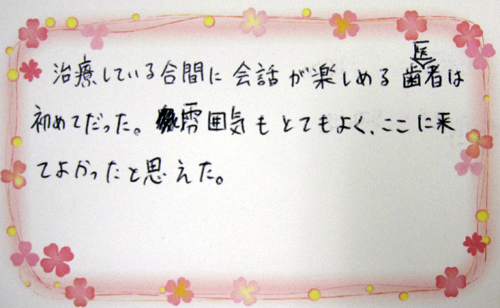 治療している合間に会話が楽しめる歯医者は
初めてだった。雰囲気もとてもよく、ここに来
てよかったと思えた。